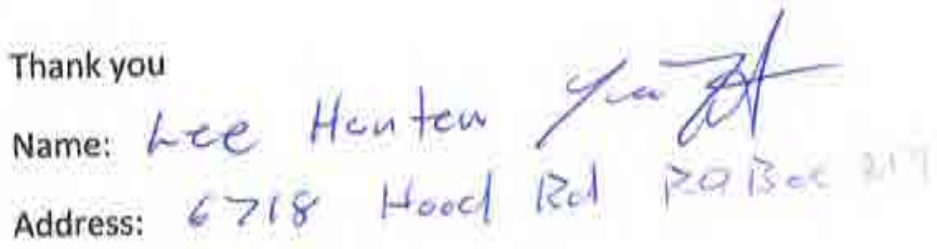 Thank you
Name: Lee Henten
Address: 6718 Hood Rd PO Box 217